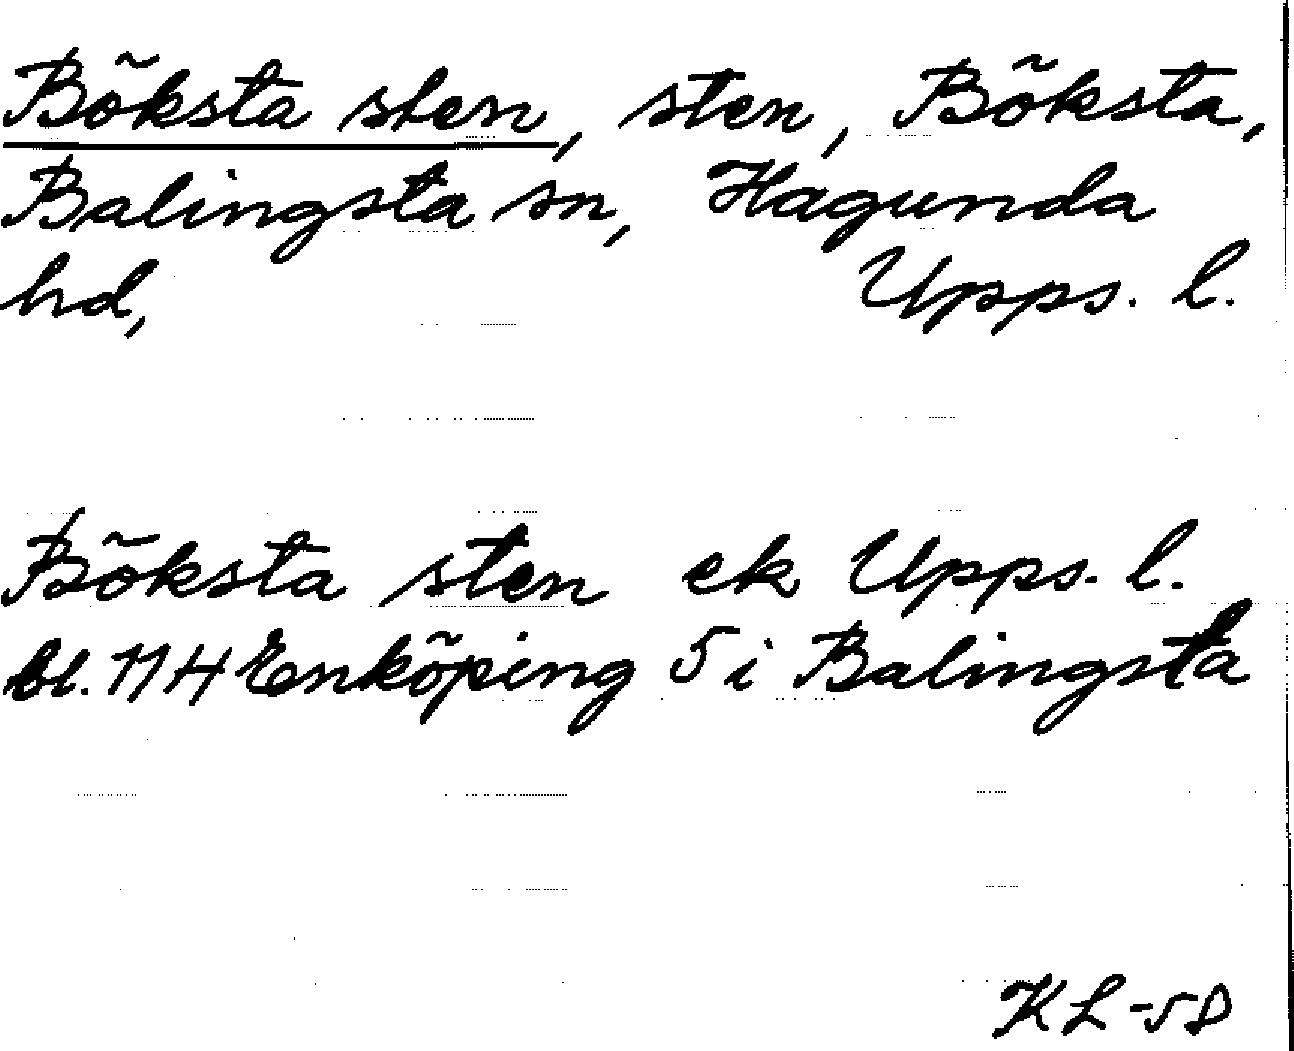 Böksta sten, sten, Böksta,
Balingsta sn, Hagunda
hd, Upps. l.
Böksta sten ek Upps. l.
bl. 11 H Enköping 5 i Balingsta
KL-58